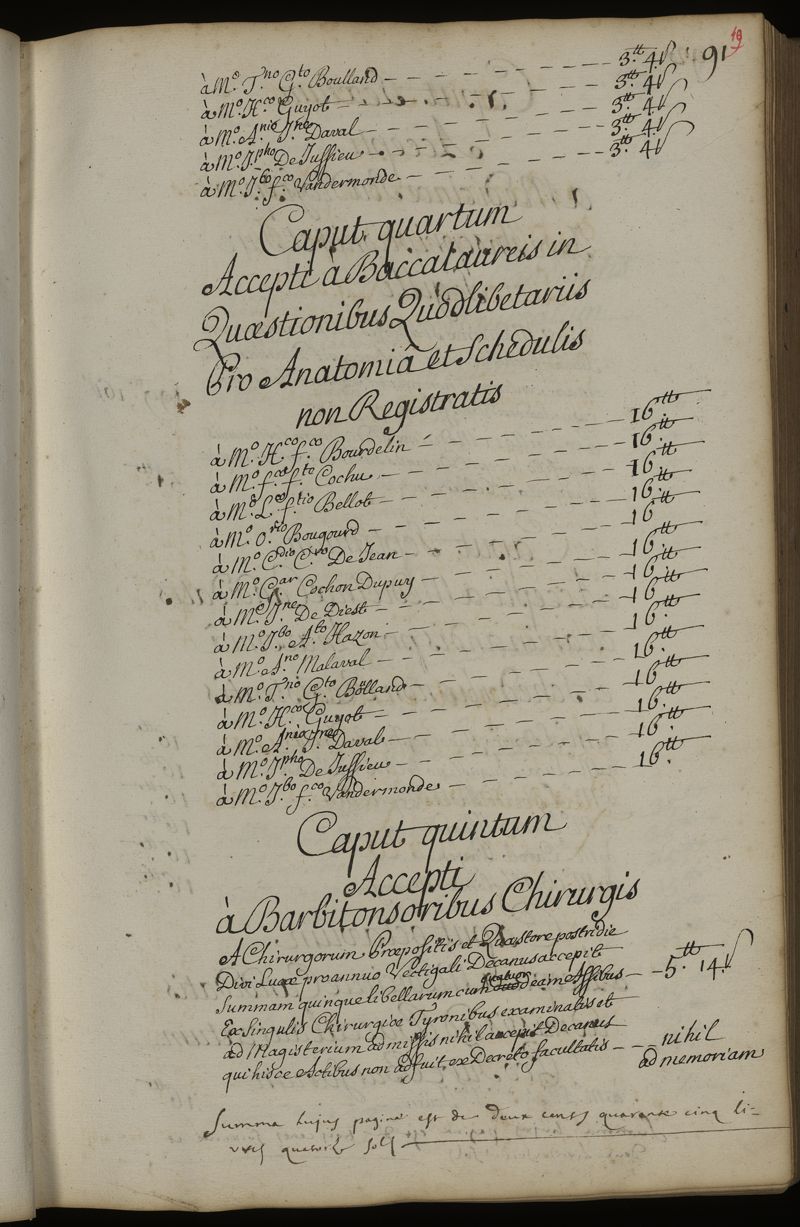 19
91
à M.o T.no G.to Boulland — 3.tt 4.s
à M.o H.co Guyot — 3.tt 4.s
à M.o A.nio J.ne Daval — 3.tt 4.s
à M.o J.pho De Jussieu — 3.tt 4.s
à M.o J.bo f.co Vandermonde — 3.tt 4.s
Caput quartum
Accepti à Baccalaureis in
Quæstionibus Quodlibetariis
Pro Anatomiâ et Schedulis
non Registratis
à M.o H.co f.co Bourdelin — 16.tt
à M.o f.co f.to Cochu — 16.tt
à M.o L.eo f.tio Bellot — 16.tt
à M.o O.rio Bougourd — 16.tt
à M.o C.dio C.ro De Jean — 16.tt
à M.o G.ar Cochon Dupuy — 16.tt
à M.o J.ne De Diest — 16.tt
à M.o J.bo A.to Hazon — 16.tt
à M.o A.no Malaval — 16.tt
à M.o T.no G.to Bölland — 16.tt
à M.o H.co Guyot — 16.tt
à M.o A.nio J.ne Daval — 16.tt
à M.o J.pho De Jussieu — 16.tt
à M.o J.bo f.co Vandermonde — 16.tt
Caput quintum
Accepti
à Barbitonsoribus Chirurgis
A Chirurgorum Præpositis et Quæstore postridie
Divi Lucæ pro annuo Vectigali Decanus accepit
Summam quinque libellarum cum Assibus — 5.tt 14.s
Ex Singulis Chirurgiæ Tyronibus examinatis et
ad Magisterium admissis nihil accepit Decanus
qui hisce Actibus non adfuit, ex Decreto facultatis — nihil
ad memoriam
Summa hujus paginæ est de deux cents quarante cinq li-
vres quatorze sols